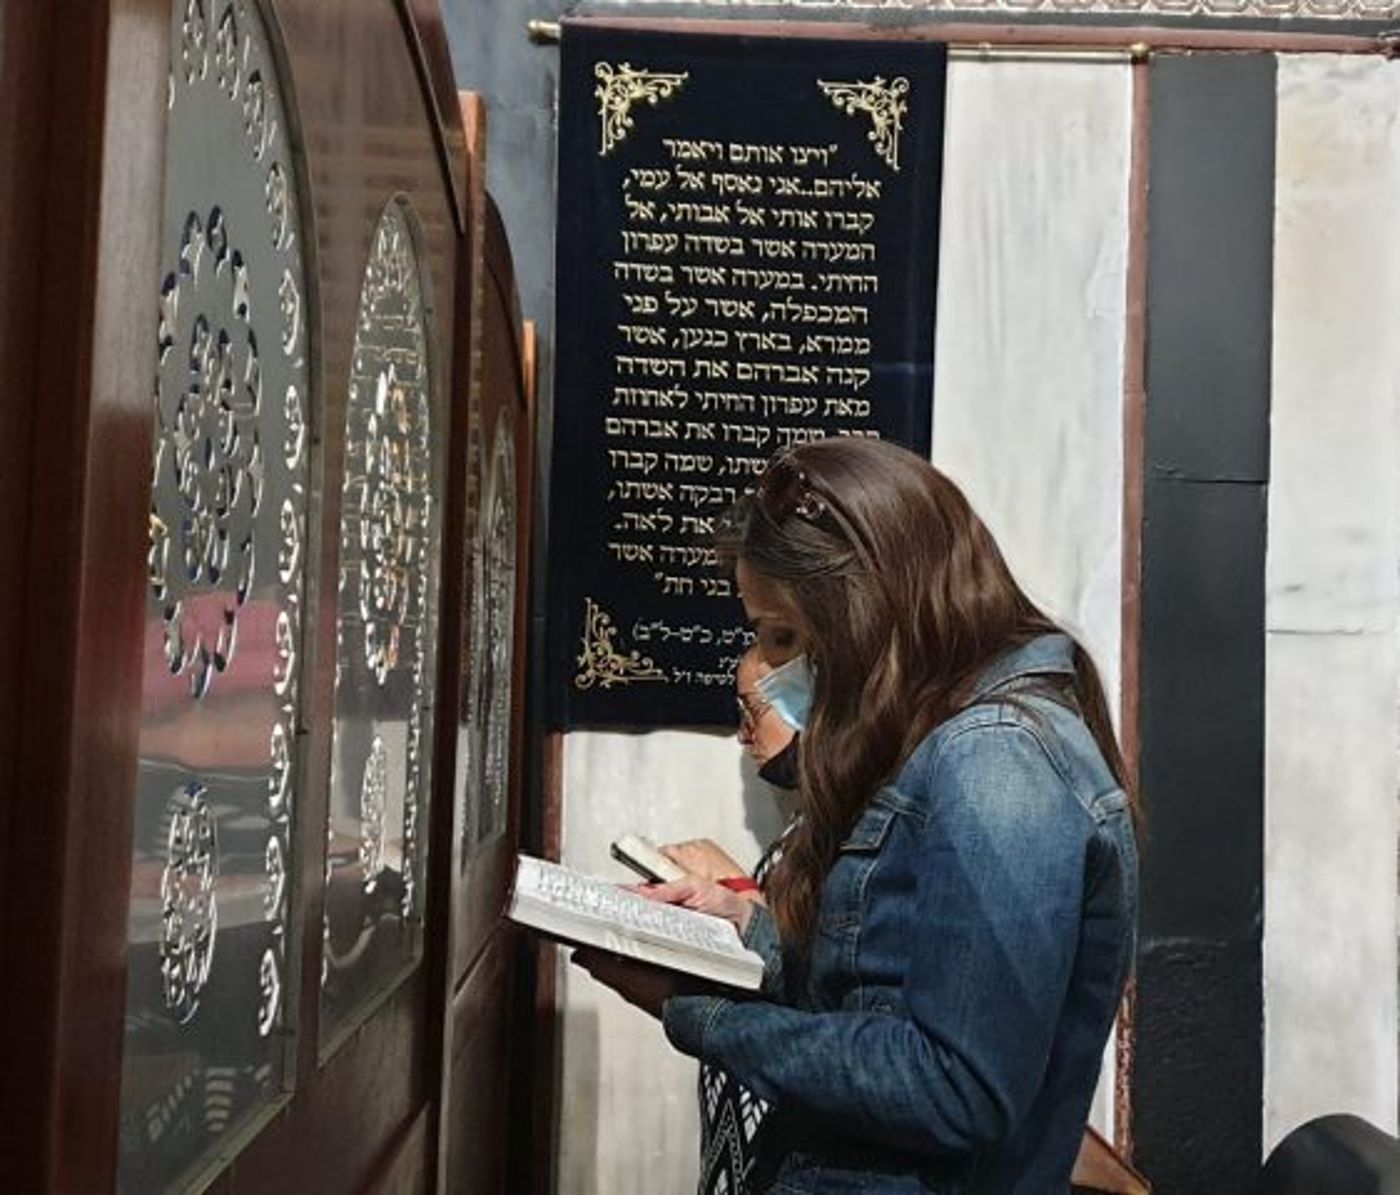 "ויצו אותם ויאמר
אליהם..אני נאסף אל עמי,
קברו אותי אל אבותי, אל
המערה אשר בשדה עפרון
החיתי. במערה אשר בשדה
המכפלה, אשר על פני
ממרא, בארץ כנען, אשר
קנה אברהם את השדה
מאת עפרון החיתי לאחוזת
שמה קברו את אברהם
שמה קברו
רבקה אשתו,
את לאה.
אשר
בני חת"
כ"ט-ל"ב)
ז"ל